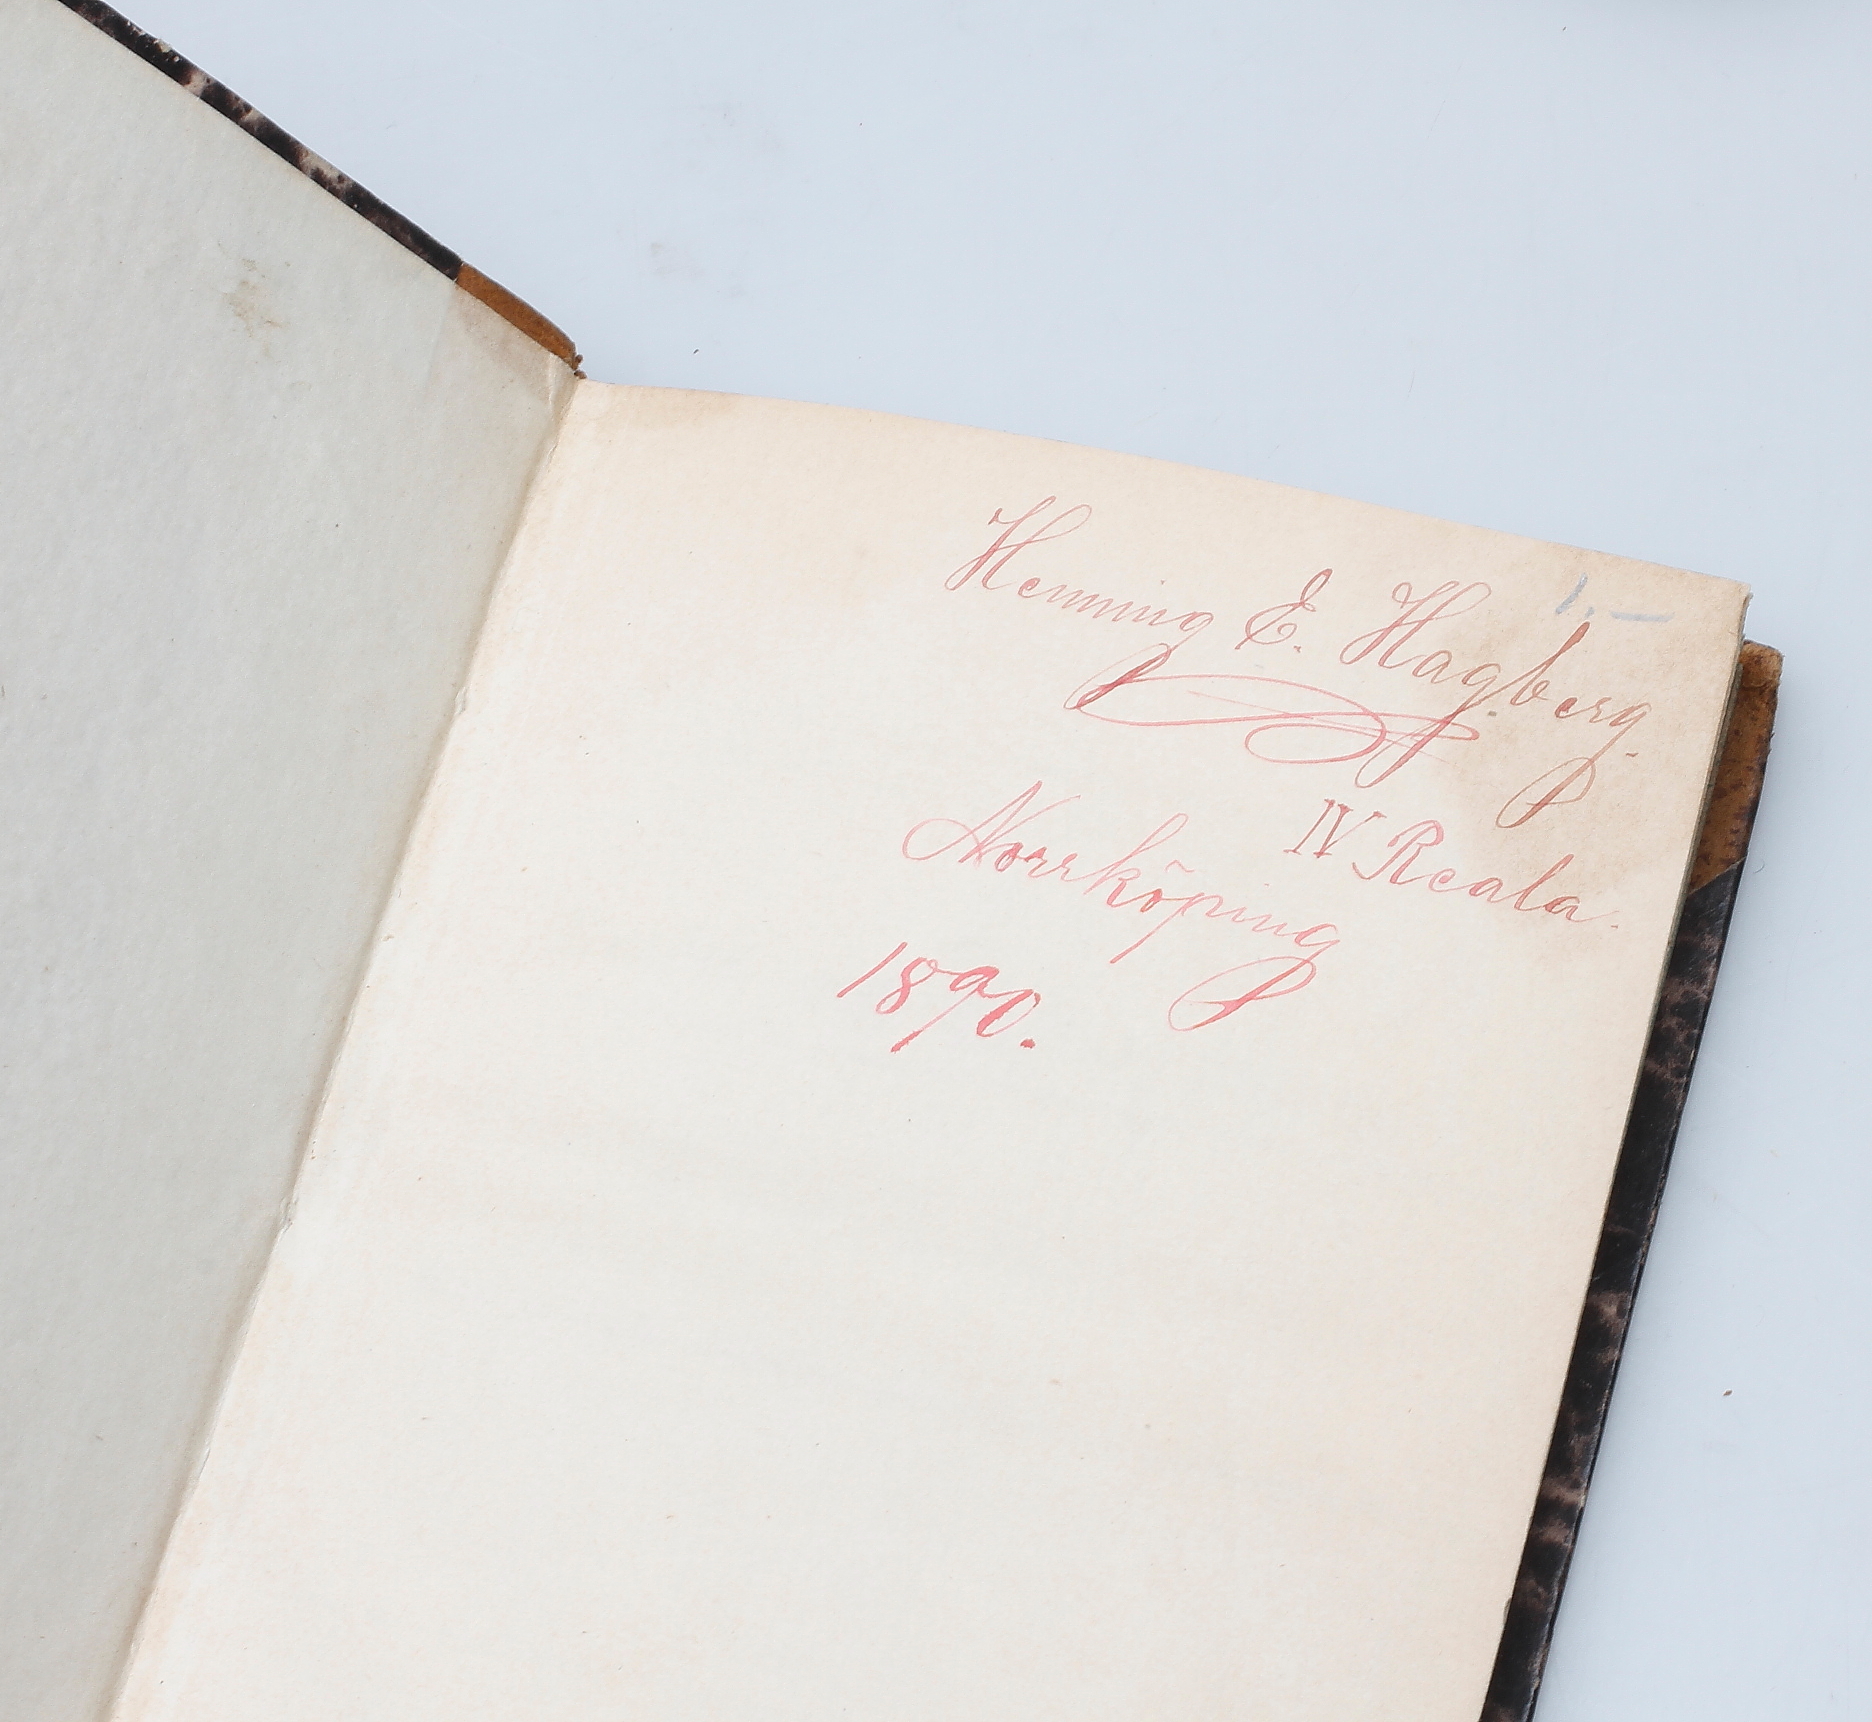 1.–
Henning E. Hagberg.
IV Reala.
Norrköping
1890.